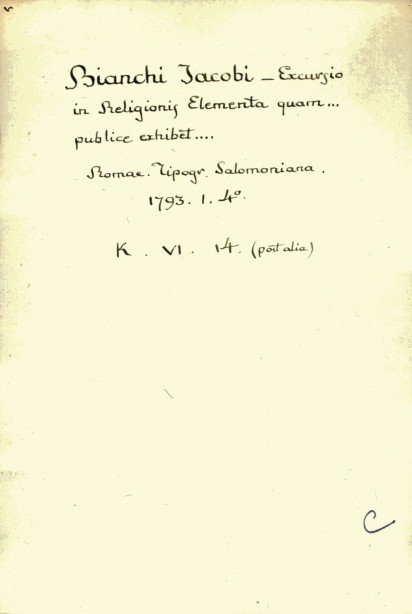 Bianchi Jacobi – Excursio
in Religionis Elementa quam...
publice exhibet....
Romae. Tipogr. Salomoniana.
1793. 1. 4º.
K. VI. 14. (post alia)
C